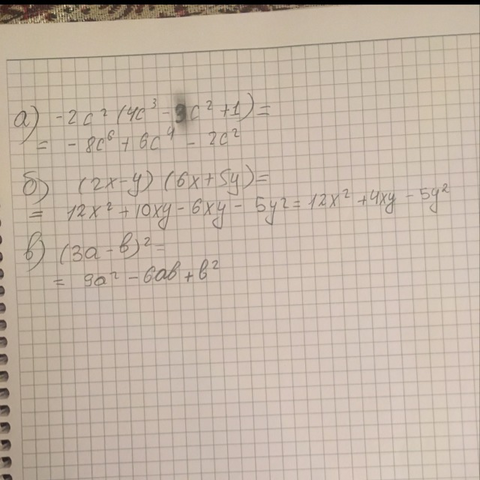 а) -2c² (4c³ - 3c² + 1) =
= -8c⁶ + 6c⁴ - 2c²
б) (2x - y) (6x + 5y) =
= 12x² + 10xy - 6xy - 5y² = 12x² + 4xy - 5y²
в) (3a - b)² =
= 9a² - 6ab + b²